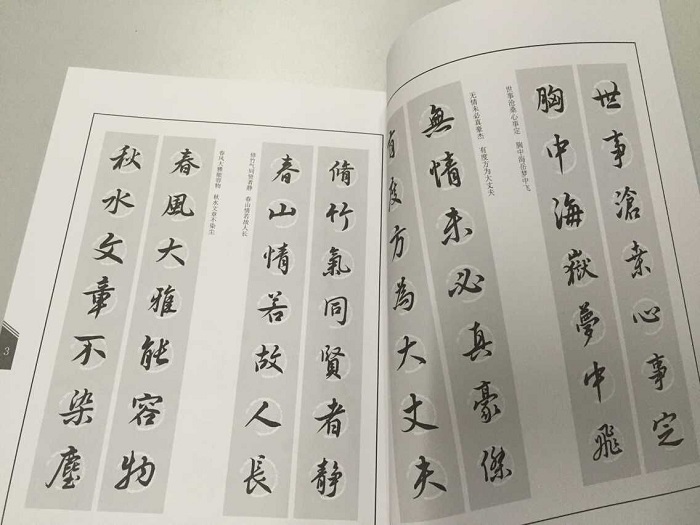 世事滄桑心事定
胸中海嶽夢中飛
世事沧桑心事定 胸中海岳梦中飞
無情未必真豪傑
有度方為大丈夫
无情未必真豪杰 有度方为大丈夫
脩竹氣同賢者靜
春山情若故人長
修竹气同贤者静 春山情若故人长
春風大雅能容物
秋水文章不染塵
春风大雅能容物 秋水文章不染尘
3